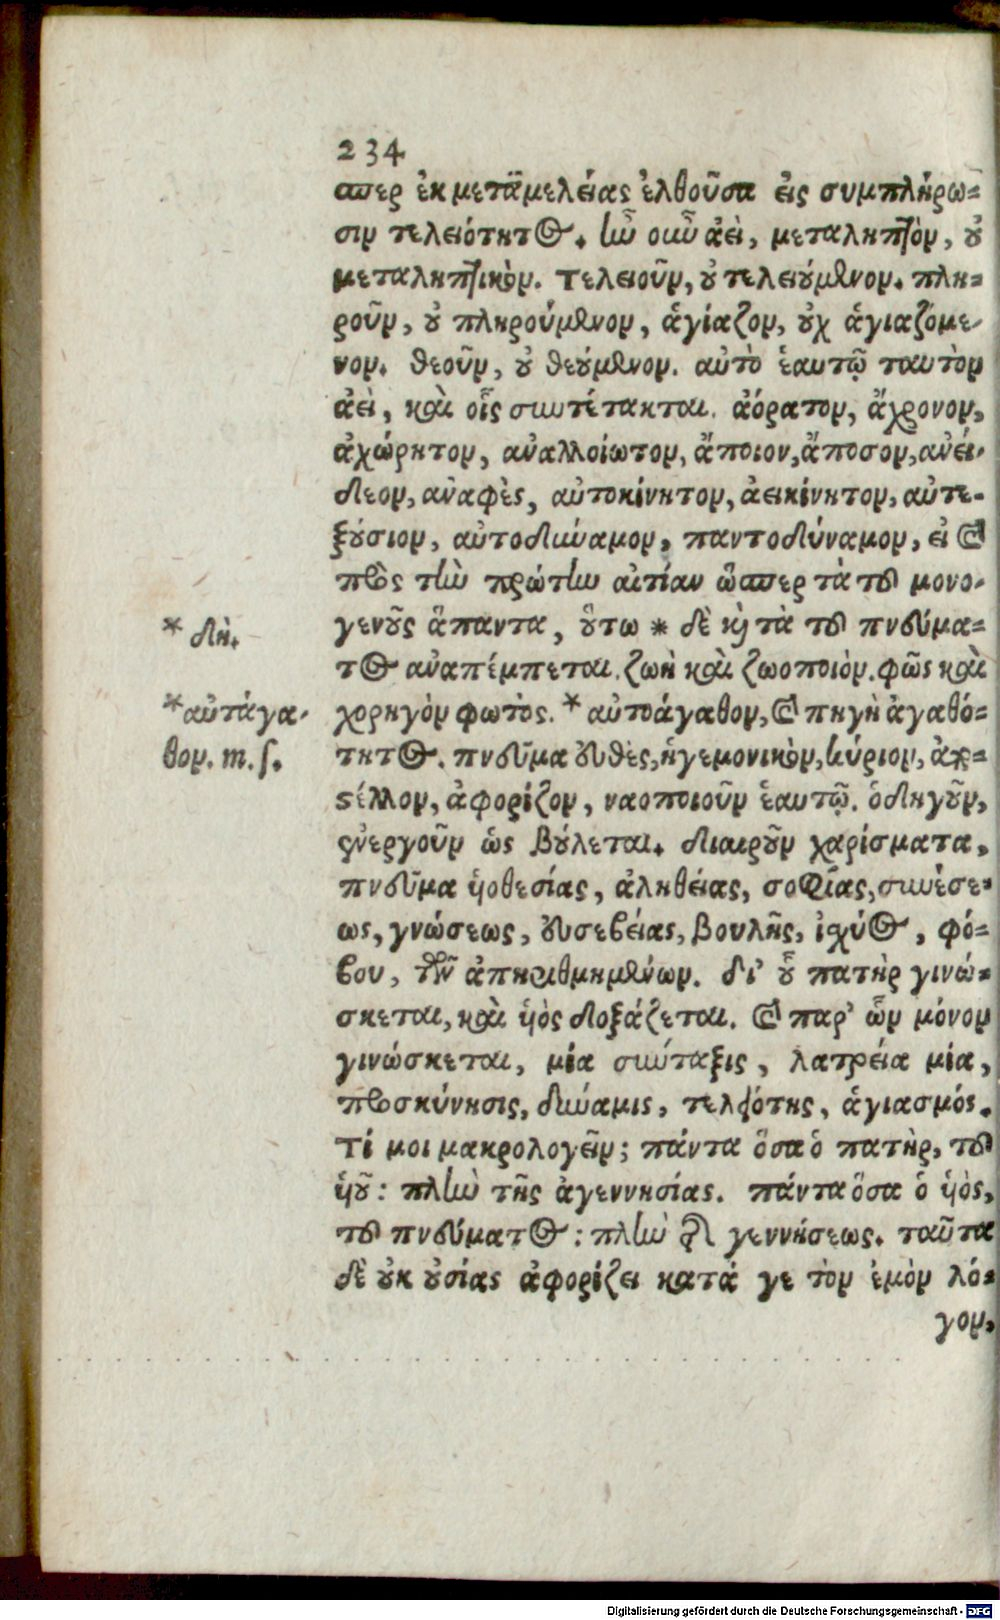 234
ασπερ ἐκ μεταμελείας ἐλθοῦσα εἰς συμπλήρω-
σιν τελειότητος. ἦν οὖν ἀεὶ, μεταληπτὸν, οὐ
μεταληπτικὸν. τελειοῦν, οὐ τελειούμενον. πλη-
ροῦν, οὐ πληρούμενον, ἁγιάζον, οὐχ ἁγιαζόμε-
νον. θεοῦν, οὐ θεούμενον. αὐτὸ ἑαυτῷ ταυτὸν
ἀεὶ, καὶ οἷς συντέτακται. ἀόρατον, ἄχρονον,
ἀχώρητον, ἀναλλοίωτον, ἄποιον, ἄποσον, ἀνεί-
δεον, ἀναφὲς, αὐτοκίνητον, ἀεικίνητον, αὐτε-
ξούσιον, αὐτοδύναμον, παντοδύναμον, εἰ καὶ
πρὸς τὴν πρώτην αἰτίαν ὥσπερ τὰ τοῦ μονο-
γενοῦς ἅπαντα, οὕτω * δὲ καὶ τὰ τοῦ πνεύμα-
* δὴ.
τος ἀναπέμπεται. ζωὴ καὶ ζωοποιὸν. φῶς καὶ
χορηγὸν φωτὸς. * αὐτοάγαθον, καὶ πηγὴ ἀγαθό-
*αὐτάγα-
τητος. πνεῦμα εὐθὲς, ἡγεμονικὸν, κύριον, ἀπο-
θον. m. ſ.
στέλλον, ἀφορίζον, ναοποιοῦν ἑαυτῷ. ὁδηγοῦν,
ἐνεργοῦν ὡς βούλεται. διαιροῦν χαρίσματα,
πνεῦμα υἱοθεσίας, ἀληθείας, σοφίας, συνέσε-
ως, γνώσεως, εὐσεβείας, βουλῆς, ἰχύος, φό-
βου, τῶν ἀπηριθμημένων. δι' οὗ πατὴρ γινώ-
σκεται, καὶ υἱὸς δοξάζεται. καὶ παρ' ὧν μόνον
γινώσκεται, μία σύνταξις, λατρεία μία,
προσκύνησις, δύναμις, τελειότης, ἁγιασμός.
τί μοι μακρολογεῖν; πάντα ὅσα ὁ πατὴρ, τοῦ
υἱοῦ: πλὴν τῆς ἀγεννησίας. πάντα ὅσα ὁ υἱὸς,
τοῦ πνεύματος: πλὴν τῆς γεννήσεως. ταῦτα
δὲ οὐκ οὐσίας ἀφορίζει κατά γε τὸν ἐμὸν λό-
γον,
Digitalisierung gefördert durch die Deutsche Forschungsgemeinschaft - DFG